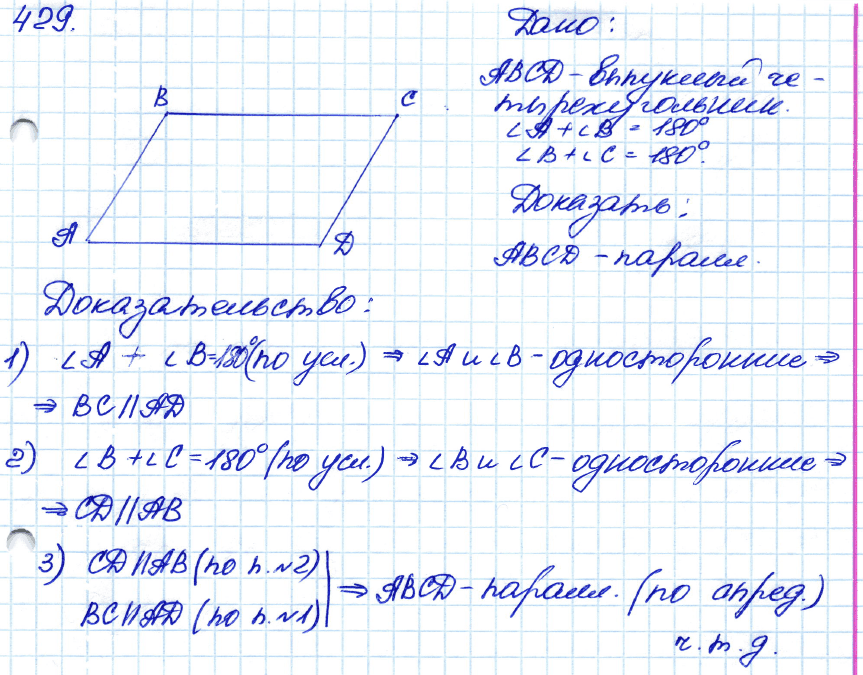 429.
Дано:
ABCD - выпуклый че-
тырехугольник.
∠A + ∠B = 180°
∠B + ∠C = 180°.
Доказать:
ABCD - паралл.
B
C
A
D
Доказательство:
1) ∠A + ∠B = 180° (по усл.) ⇒ ∠A и ∠B - односторонние ⇒
⇒ BC || AD
2) ∠B + ∠C = 180° (по усл.) ⇒ ∠B и ∠C - односторонние ⇒
⇒ CD || AB
3) CD || AB (по п. №2)
BC || AD (по п. №1)
⇒ ABCD - паралл. (по опред.)
ч.т.д.